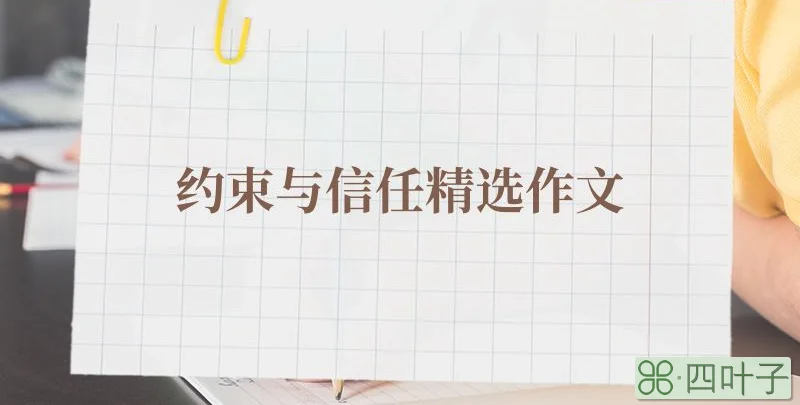 约束与信任精选作文
四叶子